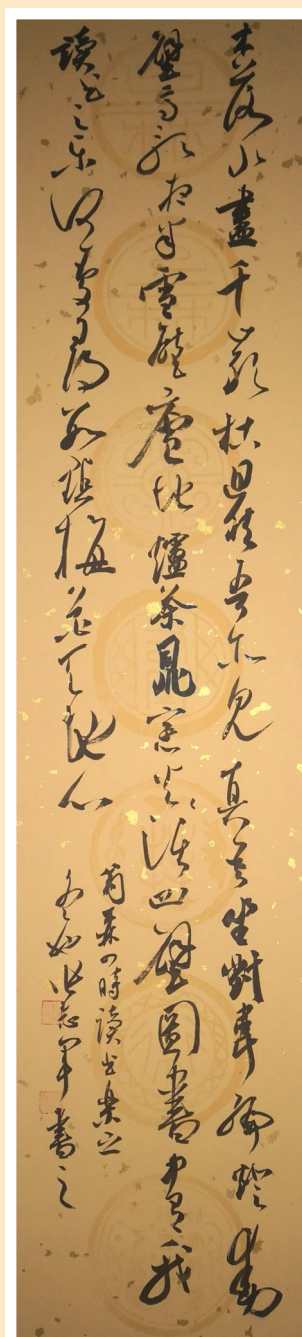 木落水盡千巖枯迥然吾亦見真吾坐對韋編燈動
壁高歌夜半雪壓廬地爐茶鼎烹火活四壁圖書中有我
讀書之樂何處尋數點梅花天地心
翁森四時讀書樂之
冬 張志軍書之